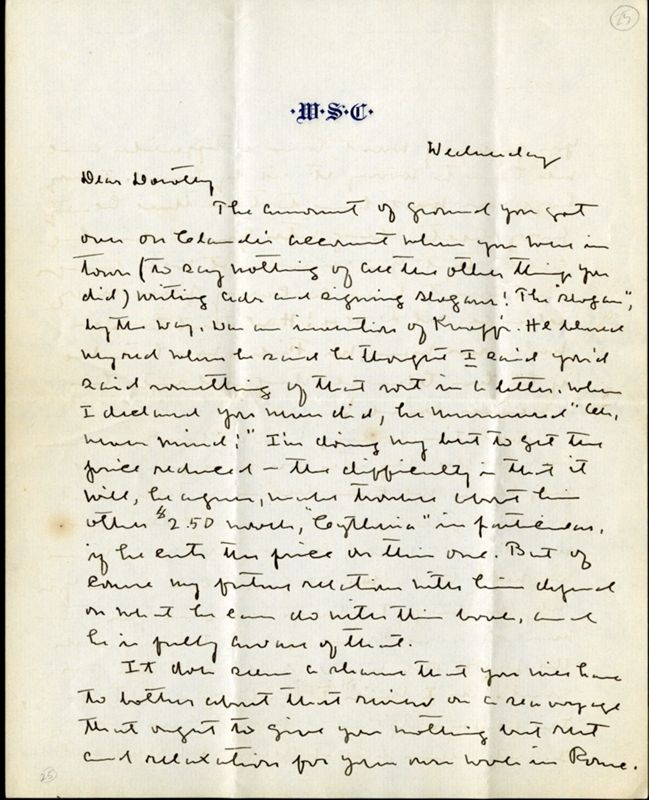 25
·W·S·C·
Wednesday
Dear Dorothy
The amount of ground you got
over on Claude's account when you were in
town (to say nothing of all the other things you
did) writing ads and signing slogans! The "slogan",
by the way, was an invention of Knopf's. He blamed
when he said he thought I said you'd
said something of that sort in a letter. When
I declared you never did, he murmured "Oh,
never mind!" I'm doing my best to get the
price reduced — the difficulty is that it
will, he argues, make trouble about his
other $2.50 novels, "Cytherea" in particular,
if he cuts the price on this one. But of
course my future relations with him depend
on what he can do with this book, and
he is fully aware of that.
It does seem a shame that you will have
to bother about that review on a sea voyage
that ought to give you nothing but rest
and relaxation for your own work in Rome.
25